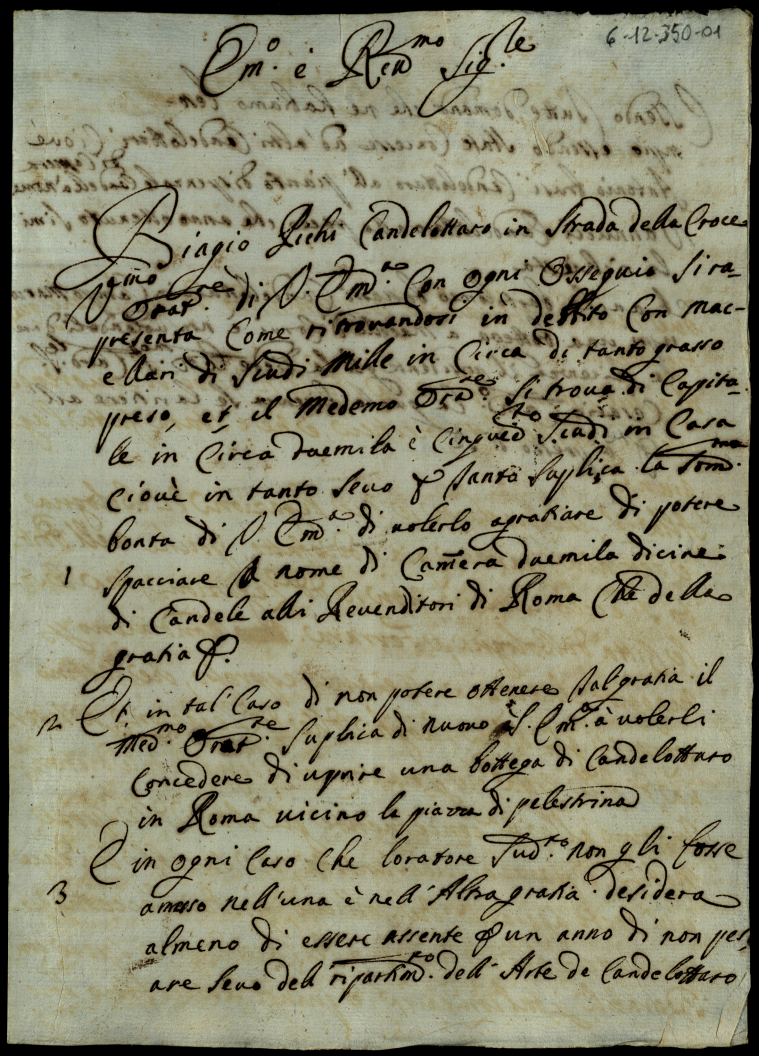 6-12-350-01
Em.º è Rev.mo Sig.re
Biagio Richi Candelottaro in Strada della Croce
Orat.re di V. Em.a Con ogni Ossequio Si ra-
presenta Come ritrovandosi in debito Con Mac-
ellari di Scudi Mille in Circa di tanto grasso
preso, et il Medemo Orat.re Si trova di Capita-
le in Circa duemila è Cinquecto Scudi in Casa
Ciouè in tanto Seuo p tanto Suplica la Som.ma
bonta di V. Em.a di uolerlo agratiare di potere
1 spacciare A nome di Camera duemila dicine
di Candele alli Reuenditori di Roma Che della
gratia &.
2 Et in tal Caso di non potere ottenere tal gratia il
Med.mo Orat.re Suplica di nuouo V. Em.a à uolerli
Concedere di uprire una bottega di Candelottaro
in Roma uicino la piazza di pelestrina
3 E in ogni Caso Che loratore Sud.to non gli fosse
amesso nell'una è nell'Altra gratia desidera
almeno di essere assente p un anno di non pes-
are Seuo del ripartim.to dell'Arte de Candelottaro